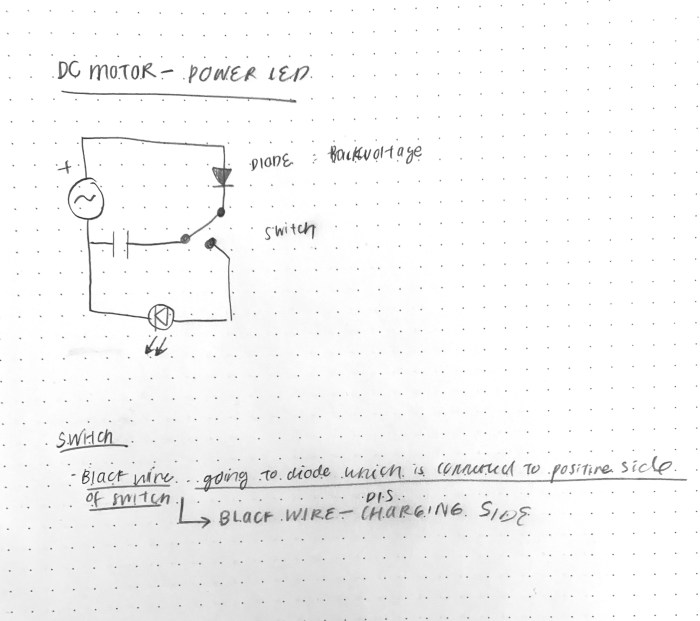 DC MOTOR - POWER LED.
+
DIODE : Backvoltage
switch
Switch
- Black wire going to diode which is connected to positive side
of switch
DIS.
BLACK WIRE - CHARGING SIDE